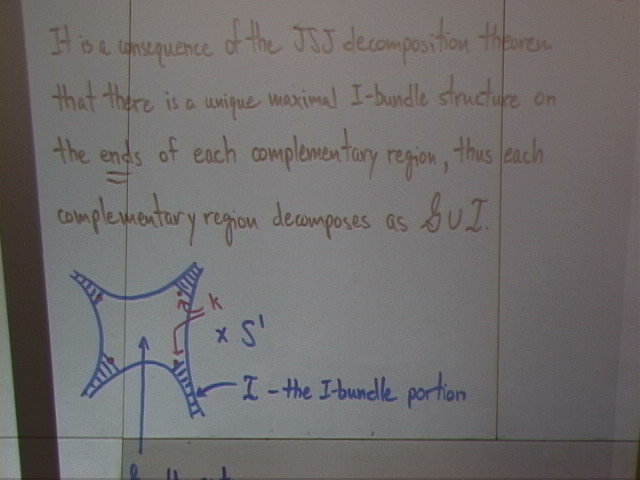 It is a consequence of the JSJ decomposition theorem
that there is a unique maximal I-bundle structure on
the ends of each complementary region, thus each
complementary region decomposes as G ∪ I.
K
x S¹
I - the I-bundle portion